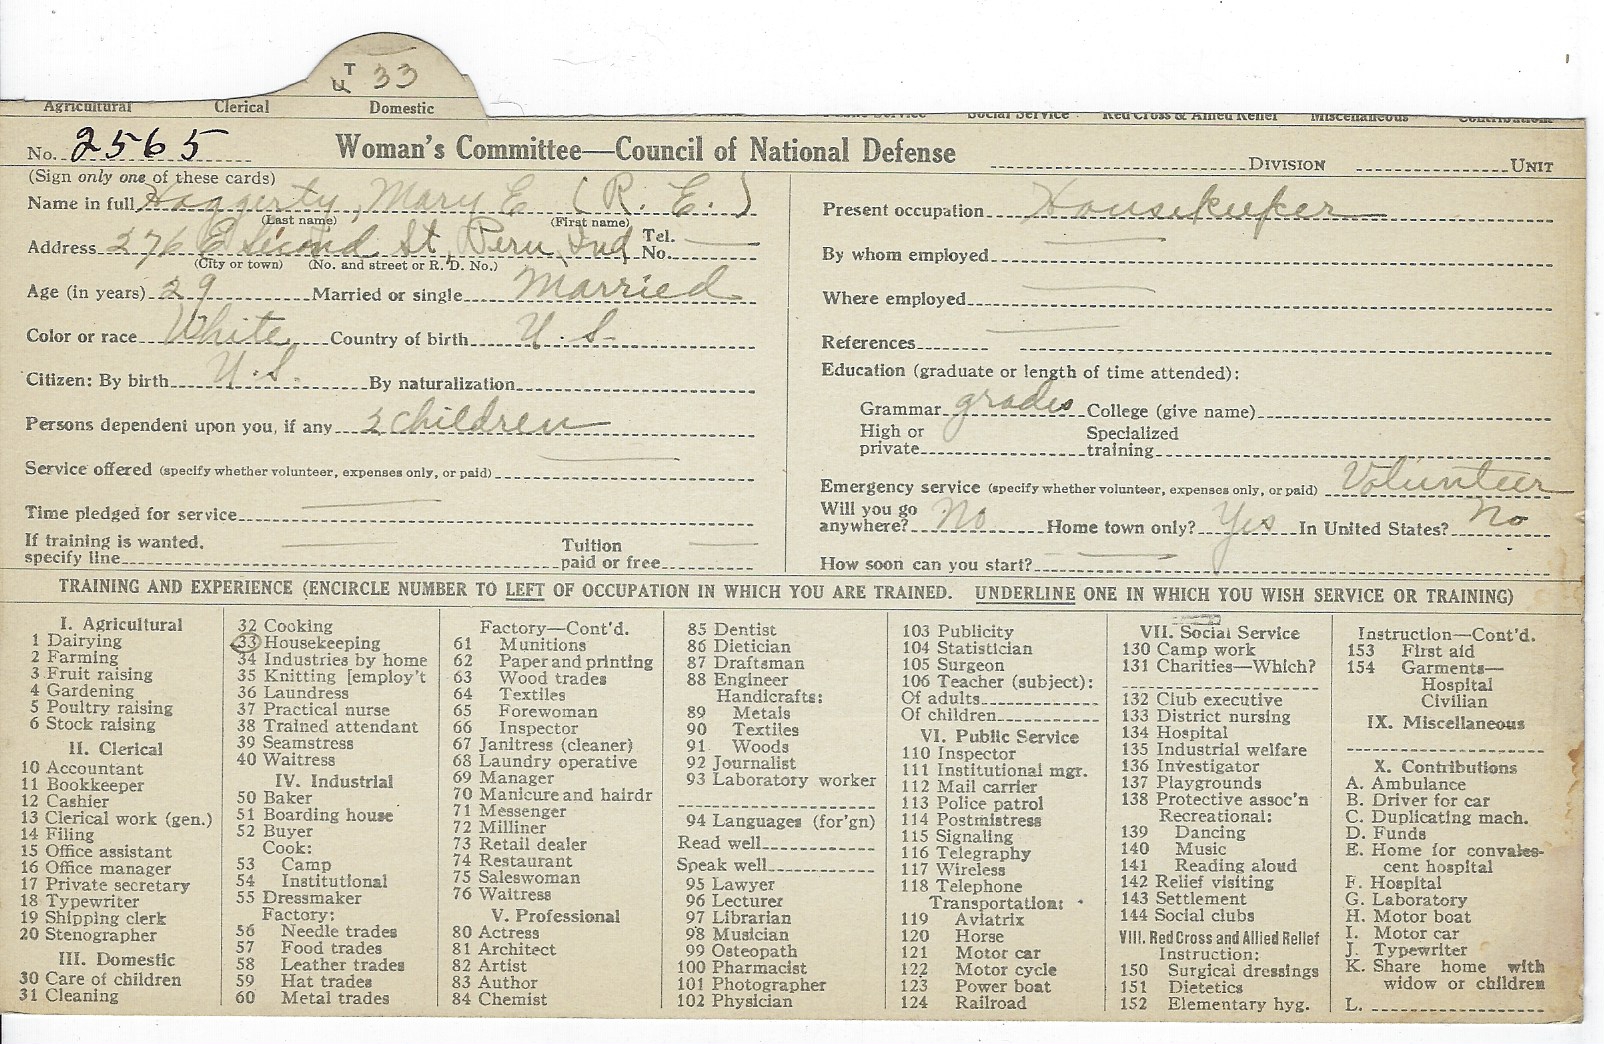 T
U 33
Agricultural Clerical Domestic Public Service Social Service Red Cross & Allied Relief Miscellaneous Contributions
No. 2565 Woman's Committee—Council of National Defense DIVISION UNIT
(Sign only one of these cards)
Name in full Haggerty, Mary E (R. E.)
(Last name) (First name)
Address 276 E Second St, Peru, Ind Tel. No.
(City or town) (No. and street or R. D. No.)
Age (in years) 29 Married or single Married
Color or race White Country of birth U.S.
Citizen: By birth U.S. By naturalization
Persons dependent upon you, if any 2 children
Service offered (specify whether volunteer, expenses only, or paid)
Time pledged for service
If training is wanted, specify line Tuition paid or free
Present occupation Housekeeper
By whom employed
Where employed
References
Education (graduate or length of time attended):
Grammar grades College (give name)
High or private Specialized training
Emergency service (specify whether volunteer, expenses only, or paid) Volunteer
Will you go anywhere? No Home town only? Yes In United States? No
How soon can you start?
TRAINING AND EXPERIENCE (ENCIRCLE NUMBER TO LEFT OF OCCUPATION IN WHICH YOU ARE TRAINED. UNDERLINE ONE IN WHICH YOU WISH SERVICE OR TRAINING)
I. Agricultural
1 Dairying
2 Farming
3 Fruit raising
4 Gardening
5 Poultry raising
6 Stock raising
II. Clerical
10 Accountant
11 Bookkeeper
12 Cashier
13 Clerical work (gen.)
14 Filing
15 Office assistant
16 Office manager
17 Private secretary
18 Typewriter
19 Shipping clerk
20 Stenographer
III. Domestic
30 Care of children
31 Cleaning
32 Cooking
33 Housekeeping
34 Industries by home
35 Knitting [employ't
36 Laundress
37 Practical nurse
38 Trained attendant
39 Seamstress
40 Waitress
IV. Industrial
50 Baker
51 Boarding house
52 Buyer
Cook:
53 Camp
54 Institutional
55 Dressmaker
Factory:
56 Needle trades
57 Food trades
58 Leather trades
59 Hat trades
60 Metal trades
Factory—Cont'd.
61 Munitions
62 Paper and printing
63 Wood trades
64 Textiles
65 Forewoman
66 Inspector
67 Janitress (cleaner)
68 Laundry operative
69 Manager
70 Manicure and hairdr
71 Messenger
72 Milliner
73 Retail dealer
74 Restaurant
75 Saleswoman
76 Waitress
V. Professional
80 Actress
81 Architect
82 Artist
83 Author
84 Chemist
85 Dentist
86 Dietician
87 Draftsman
88 Engineer
Handicrafts:
89 Metals
90 Textiles
91 Woods
92 Journalist
93 Laboratory worker
94 Languages (for'gn)
Read well
Speak well
95 Lawyer
96 Lecturer
97 Librarian
98 Musician
99 Osteopath
100 Pharmacist
101 Photographer
102 Physician
103 Publicity
104 Statistician
105 Surgeon
106 Teacher (subject):
Of adults
Of children
VI. Public Service
110 Inspector
111 Institutional mgr.
112 Mail carrier
113 Police patrol
114 Postmistress
115 Signaling
116 Telegraphy
117 Wireless
118 Telephone
Transportation:
119 Aviatrix
120 Horse
121 Motor car
122 Motor cycle
123 Power boat
124 Railroad
VII. Social Service
130 Camp work
131 Charities—Which?
132 Club executive
133 District nursing
134 Hospital
135 Industrial welfare
136 Investigator
137 Playgrounds
138 Protective assoc'n
Recreational:
139 Dancing
140 Music
141 Reading aloud
142 Relief visiting
143 Settlement
144 Social clubs
VIII. Red Cross and Allied Relief
Instruction:
150 Surgical dressings
151 Dietetics
152 Elementary hyg.
Instruction—Cont'd.
153 First aid
154 Garments—
Hospital
Civilian
IX. Miscellaneous
X. Contributions
A. Ambulance
B. Driver for car
C. Duplicating mach.
D. Funds
E. Home for convales-
cent hospital
F. Hospital
G. Laboratory
H. Motor boat
I. Motor car
J. Typewriter
K. Share home with
widow or children
L.